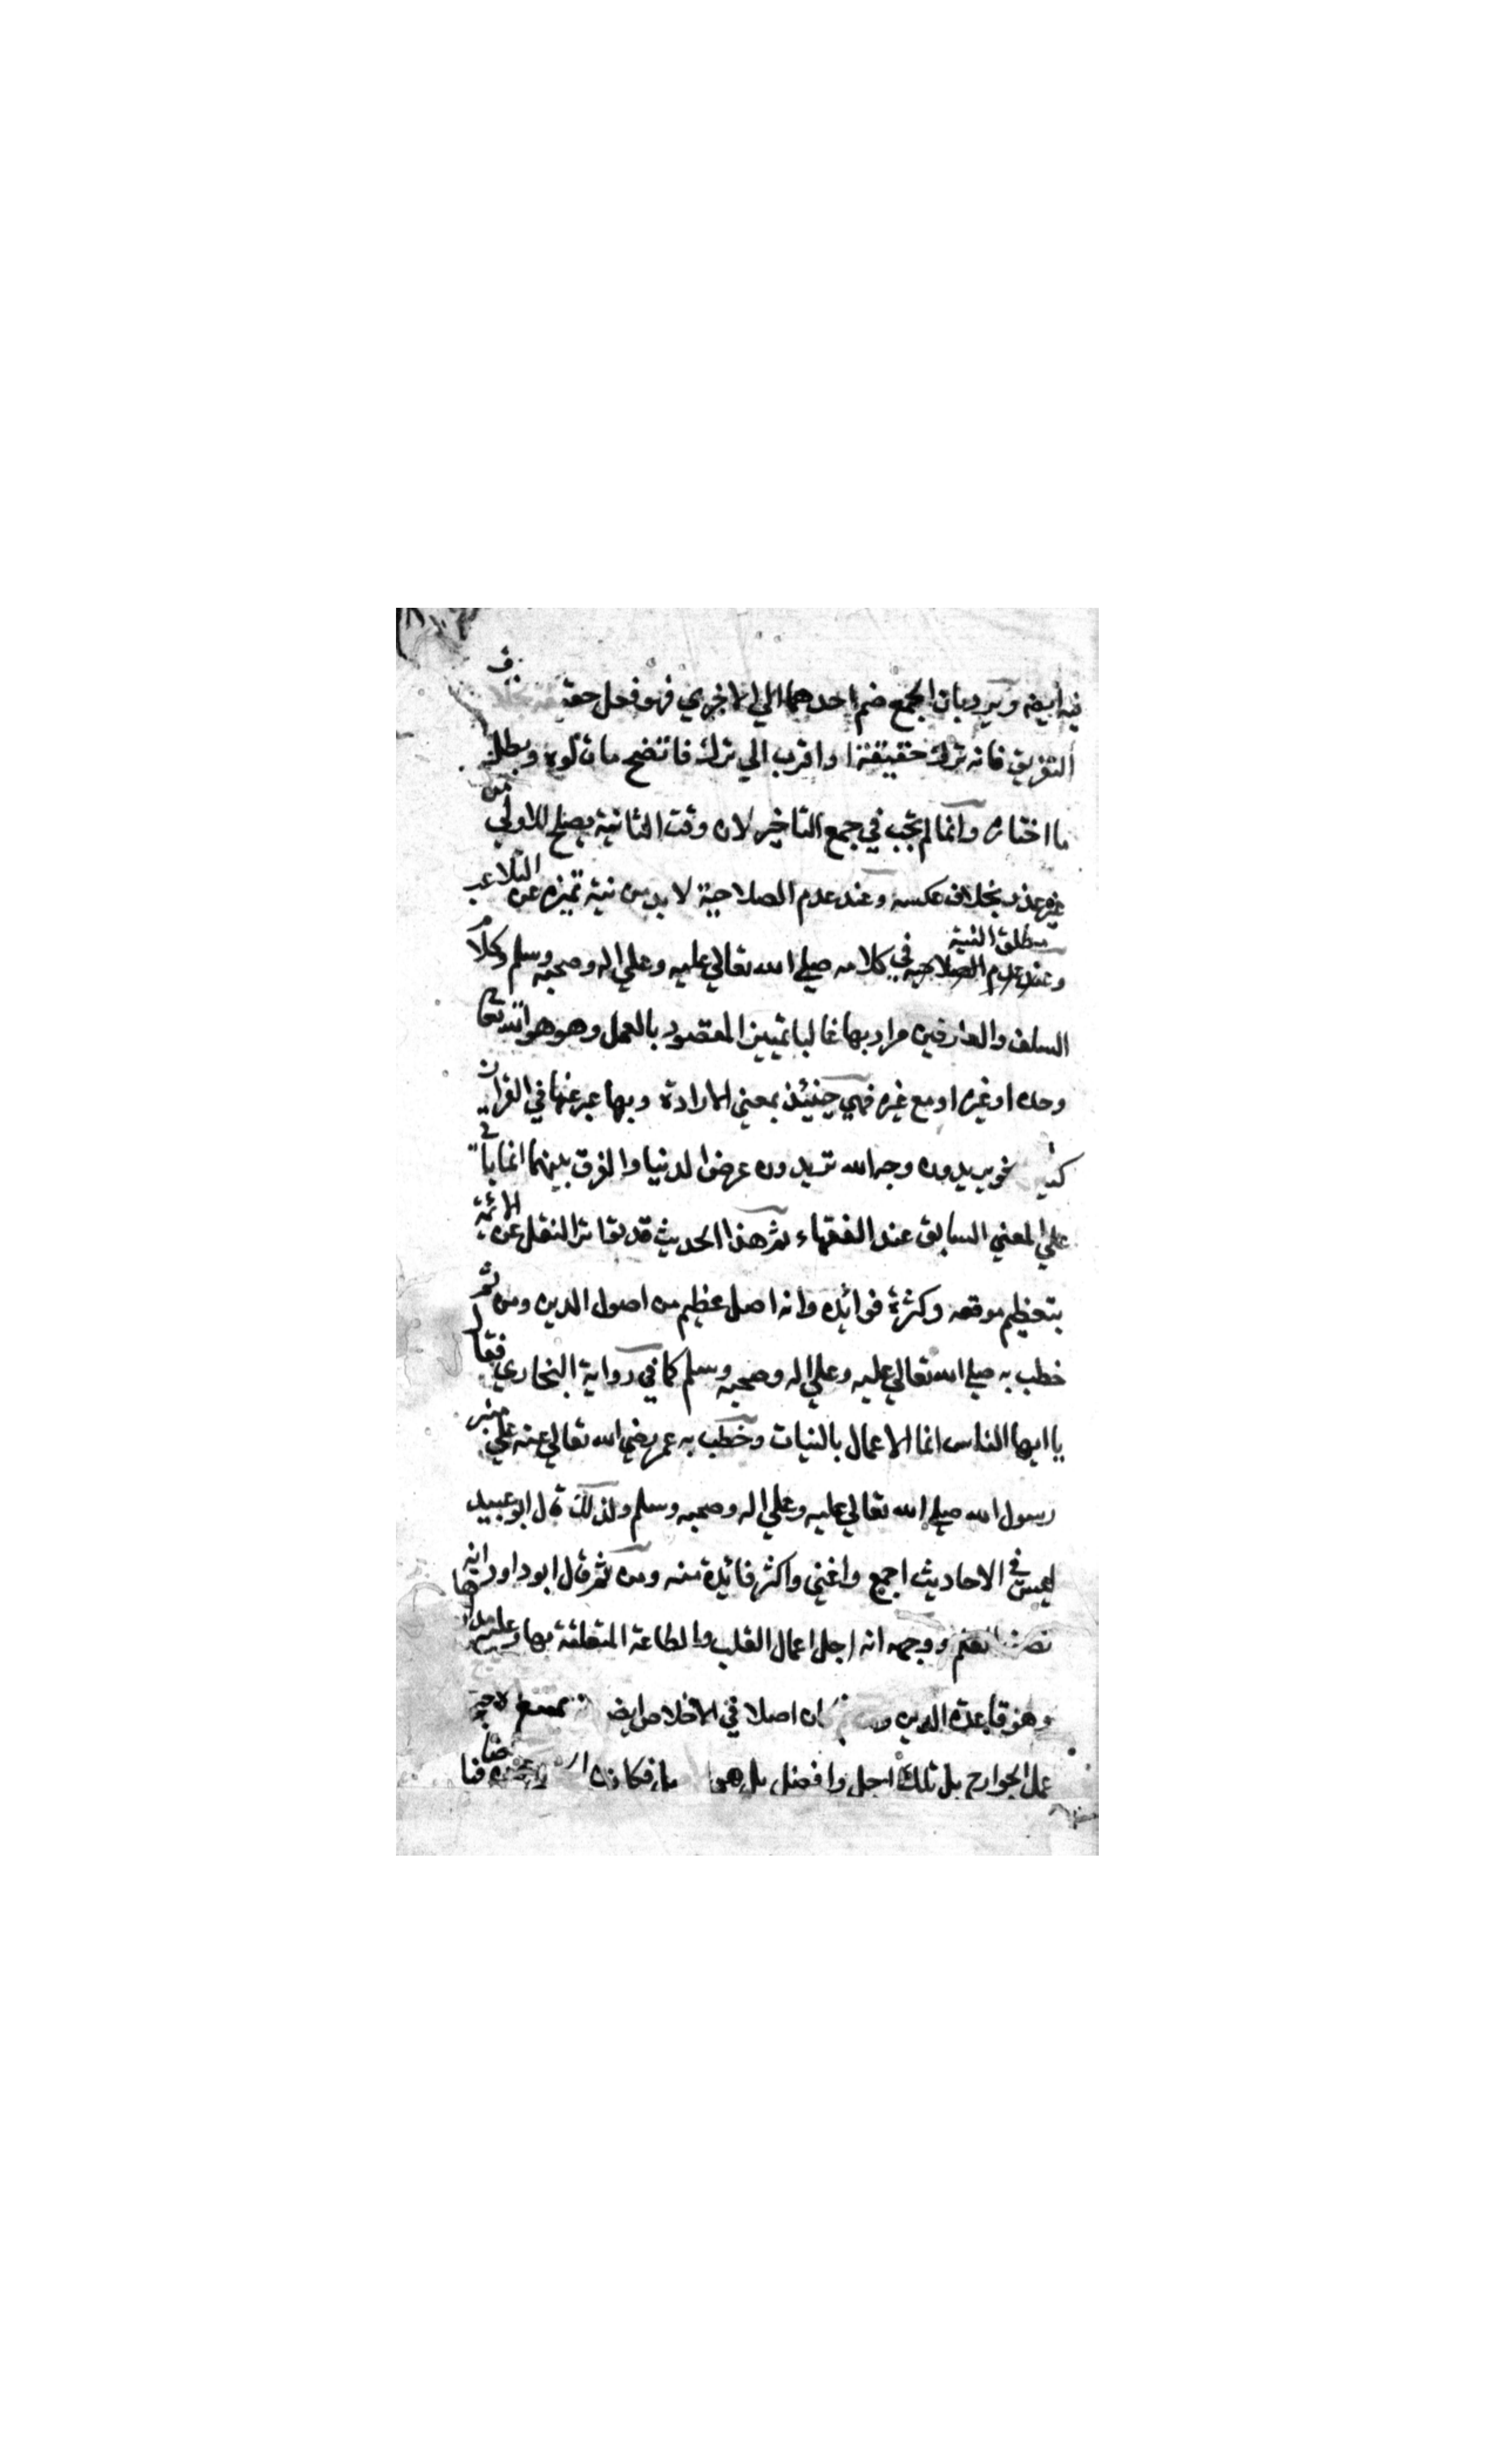 فيه ايضه ويرد بان الجمع ضم احدهما الي الاخري فهو فعل حقيقة بخلاف
التفريق فانه ترك حقيقة او اقرب الي ترك فاتضح ما قالوه وبطل
ما اختاره وانما لم تجب في جمع التاخير لان وقت الثانية يصلح للاولي من
غير عذر بخلاف عكسه وعند عدم الصلاحية لا بد من نية تميزه عن التلاعب
ومطلق النية في كلامه صلي الله تعالي عليه وعلي اله وصحبه وسلم وكلام
السلف والعارفين مراد بها غالبا تمييز المقصود بالعمل وهو هو الله تعا
وحده او غيره او مع غيره فهي حينئذ بمعني الارادة وبها عبر عنها في القران
كثيرا نحو يريدون وجه الله تريدون عرض الدنيا والفرق بينهما انما ياتي
علي المعني السابق عند الفقهاء ثم هذا الحديث قد تواتر النقل عن الائمة
بتعظيم موقعه وكثرة فوائده وانه اصل عظيم من اصول الدين ومن ثم
خطب به صلي الله تعالي عليه وعلي اله وصحبه وسلم كما في رواية البخاري فقال
يا ايها الناس انما الاعمال بالنيات وخطب به عمر رضي الله تعالي عنه علي منبر
رسول الله صلي الله تعالي عليه وعلي اله وصحبه وسلم ولذلك قال ابو عبيد
ليس في الاحاديث اجمع واغني واكثر فائدة منه ومن ثم قال ابو داود انه
نصف ووجهه انه اجل اعمال القلب والطاعة المتعلقة بها وعليه مدارها
وهو قاعدة الدين ومن ثم كان اصلا في الاخلاص ايضا
عمل الجوارح بل تلك اجل وافضل بل هي